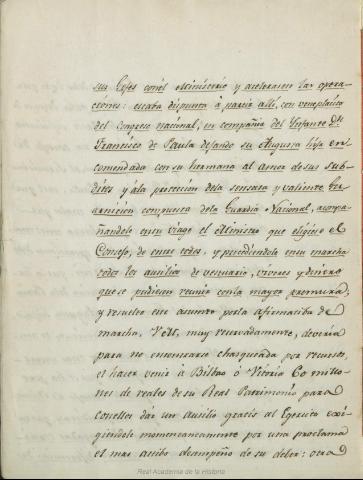 sus Gefes con el Ministerio y aceleracion las opera
ciones: estaba dispuesta á partir allí, con veneplacito
del Congreso nacional, en compañia del Ynfante Dn.
Francisco de Paula dejando su Augusta hija en
comendada con su hermana al amor de sus sub-
ditos y á la proteccion de la sensata y valiente
Guarnicion compuesta de la Guardia Nacional, acompa
ñandole en su viage el Ministro que eligiese el
Consejo, de entre todos, y precediendole en su marcha
todos los auxilios de vestuario, viveres y dinero
que se pudiesen reunir con la mayor premura,
y resuelto este asunto por la afirmatiba de
marcha, V.M., muy reservadamente, deveria
para no encontrarse chasqueada por recursos,
el hacer venir á Bilbao ó Vitoria 60 millo-
nes de reales de su Real Patrimonio para
con ellos dár un auxilio gratis al Egercito exi-
giendole momentaneamente por una proclama
el mas activo desempeño de su deber: otra
Real Academia de la Historia